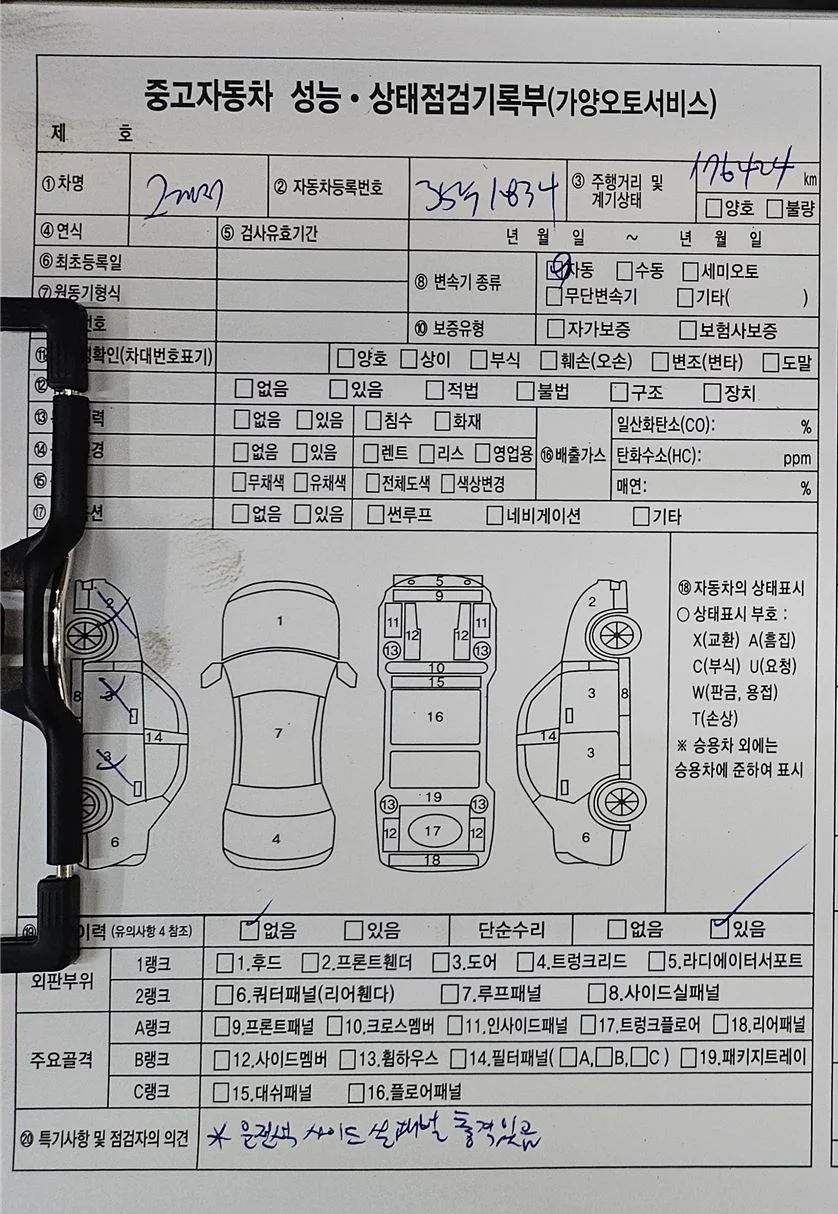 중고자동차 성능·상태점검기록부(가양오토서비스)
제 호
①차명 ② 자동차등록번호 1834 ③ 주행거리 및 계기상태 176424 km
□양호 □불량
④ 연식 ⑤ 검사유효기간 년 월 일 ~ 년 월 일
⑥ 최초등록일 ⑧ 변속기 종류 □자동 □수동 □세미오토
⑦ 원동기형식 □무단변속기 □기타( )
호 ⑩ 보증유형 □자가보증 □보험사보증
⑪ 확인(차대번호표기) □양호 □상이 □부식 □훼손(오손) □변조(변타) □도말
⑫ □없음 □있음 □적법 □불법 □구조 □장치
⑬ 력 □없음 □있음 □침수 □화재 ⑯배출가스 일산화탄소(CO): %
⑭ 경 □없음 □있음 □렌트 □리스 □영업용 탄화수소(HC): ppm
⑮ □무채색 □유채색 □전체도색 □색상변경 매연: %
⑰ 션 □없음 □있음 □썬루프 □네비게이션 □기타
2 8 3 14 3 6
1 7 4
5 9 11 12 12 11 13 13 10 15 16 19 13 13 12 17 12 18
2 3 8 14 3 6
⑱ 자동차의 상태표시
○ 상태표시 부호 :
X(교환) A(흠집)
C(부식) U(요청)
W(판금, 용접)
T(손상)
※ 승용차 외에는
승용차에 준하여 표시
⑲ 이력 (유의사항 4 참조) □없음 □있음 단순수리 □없음 □있음
외판부위 1랭크 □1.후드 □2.프론트휀더 □3.도어 □4.트렁크리드 □5.라디에이터서포트
2랭크 □6.쿼터패널(리어휀다) □7.루프패널 □8.사이드실패널
주요골격 A랭크 □9.프론트패널 □10.크로스멤버 □11.인사이드패널 □17.트렁크플로어 □18.리어패널
B랭크 □12.사이드멤버 □13.휠하우스 □14.필터패널(□A,□B,□C ) □19.패키지트레이
C랭크 □15.대쉬패널 □16.플로어패널
⑳ 특기사항 및 점검자의 의견 * 운전석 사이드 실패널 흠적있음